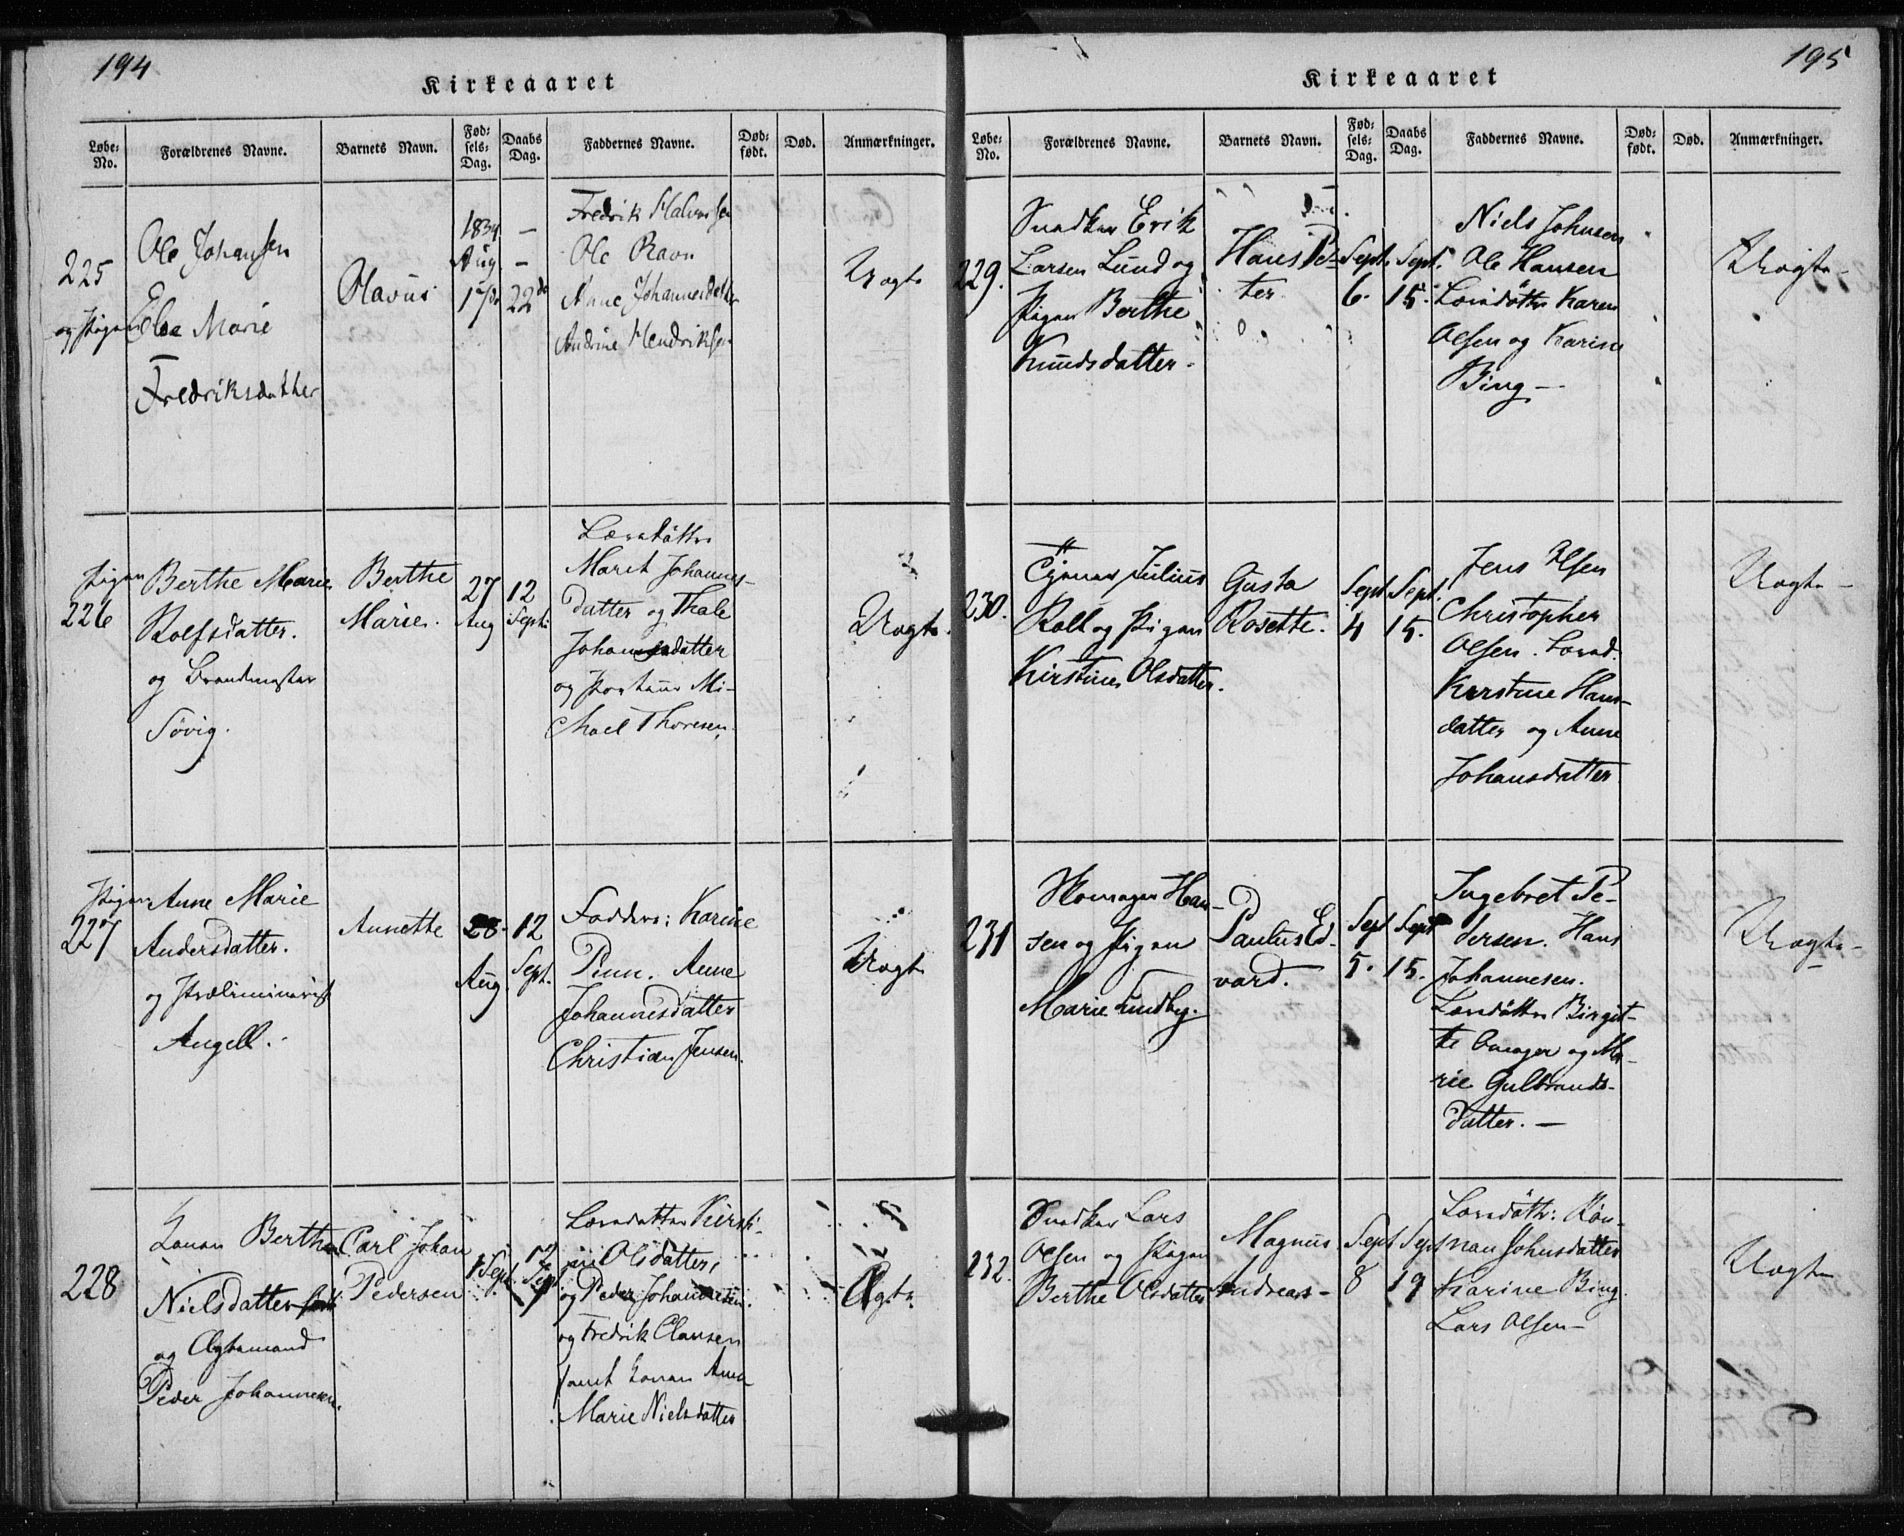 194
Kirkeaaret
Løbe-No.
Forældrenes Navne.
Barnets Navn.
Fødsels-Dag.
Daabs Dag.
Faddernes Navne.
Dødfødt.
Død.
Anmærkninger.
225
Ole Johansen
og Pigen Else Marie
Fredriksdatter
Olavus
1834
Aug
17de
22de
Fredrik Halvorsen
Ole Ravn
Anne Johannesdatter
Andrine Hendriksen
Uægte
226
Pigen Berthe Marie
Rolfsdatter.
og Brandmester
Søvig.
Berthe
Marie.
27
Aug
12
Sept:
Marit Johannes-
datter og Thale
Johansdatter
og Mi-
chael Thoresen.
Uægte.
227
Pigen Anne Marie
Andersdatter.
og Præliminarist
Angell.
Annette
28.
Aug.
12
Sept.
Faddere: Karine
Pinn. Anne
Johannesdatter
Christian Jensen.
Uægte
228
Konen Berthe
Nielsdatter
og Ægtemand
Peder Johannesen.
Carl Johan
Pedersen
1 Sept.
17
Sept
Olsdatter,
og Peder Johannesen.
og Fredrik Clausen
samt Konen Anne
Marie Nielsdatter
Ægte.
195
Kirkeaaret
Løbe-No.
Forældrenes Navne.
Barnets Navn.
Fødsels-Dag.
Daabs Dag.
Faddernes Navne.
Dødfødt.
Død.
Anmærkninger.
229.
Snedker Erik
Larsen Lund og
Pigen Berthe
Knudsdatter.
Hans Pe-
ter.
Sept.
6.
Sept.
15.
Niels Johnsen
Ole Hansen
Karen
Olsen og Karine
Bing —
Uægte
230.
Julius
og Pigen
Kirstine Olsdatter.
Gusta
Rosette.
Sept
4
Sept.
15.
Jens Olsen
Christopher
Olsen.
Kirstine Hans-
datter og Anne
Johansdatter
Uægte —
231
Skomager Han-
sen og Pigen
Marie Lundby.
Paulus Ed-
vard.
Sept
5.
Sept
15.
Ingebret Pe-
dersen. Hans
Johannesen.
Birgit-
te og Ma-
rie Gulbrands-
datter. —
Uægte —
232.
Snedker Lars
Olsen og Pigen
Berthe Olsdatter
Magnus
Andreas —
Sept
8
Sept
19
Rön-
nau Johnsdatter
Karine Bing.
Lars Olsen —
Uægte